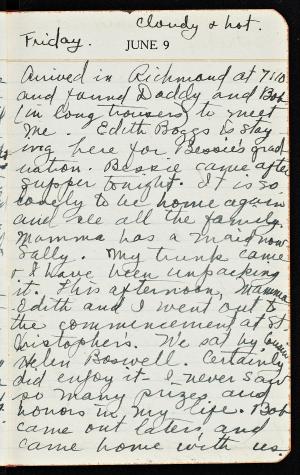 Cloudy & hot.
Friday.
JUNE 9
Arrived in Richmond at 7:10
and found Daddy and Bob
(in long trousers) to meet
me. Edith Boggs is stay-
ing here for Bessie's grad-
uation. Bessie came after
supper tonight. It is so
lovely to be home again
and see all the family.
Mamma has a maid now
Sally. My trunk came
& I have been unpacking
it. This afternoon, Mamma
Edith and I went out to
the commencement at St.
Christophers. We sat by Cousin
Helen Boswell. Certainly
did enjoy it - I never saw
so many prizes and
honors in my life. Bob
came out later and
came home with us.